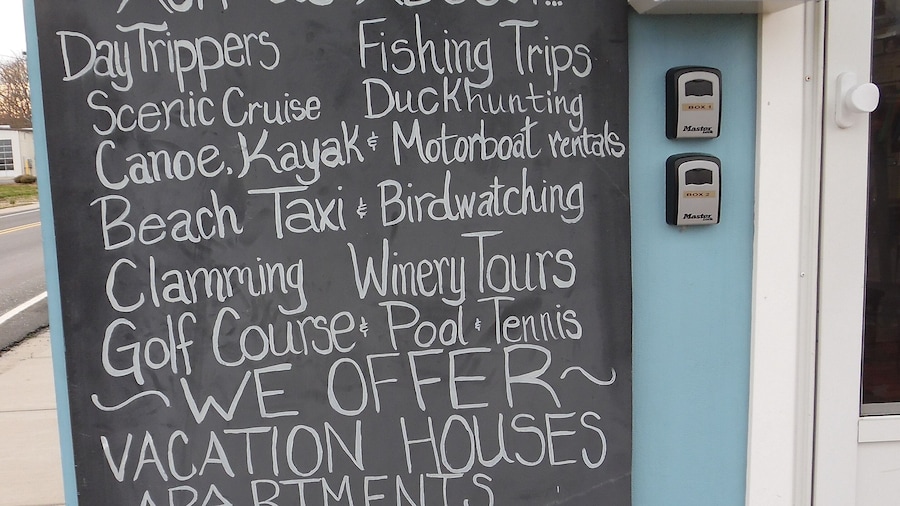 ASK US ABOUT...
Day Trippers Fishing Trips
Scenic Cruise Duckhunting
Canoe, Kayak & Motorboat rentals
Beach Taxi & Birdwatching
Clamming Winery Tours
Golf Course & Pool & Tennis
~WE OFFER~
VACATION HOUSES
APARTMENTS
BOX 1
Master
Lock
BOX 2
Master
Lock